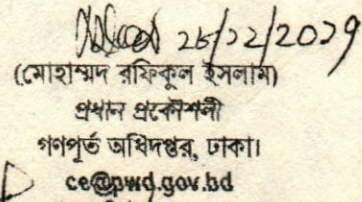 26/12/2019
(মোহাম্মদ রফিকুল ইসলাম)
প্রধান প্রকৌশলী
গণপূর্ত অধিদপ্তর, ঢাকা।
ce@pwd.gov.bd